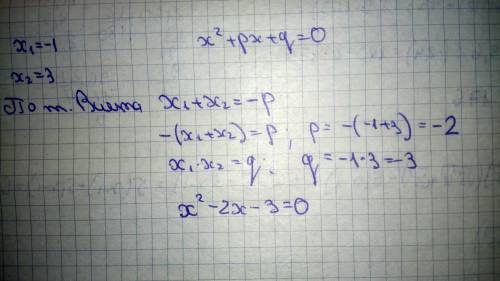 x₁=-1
x² + px + q = 0
x₂=3
По т. Виета x₁+x₂=-p
-(x₁+x₂)=p; p= -(-1+3)=-2
x₁·x₂=q; q=-1·3=-3
x²-2x-3=0